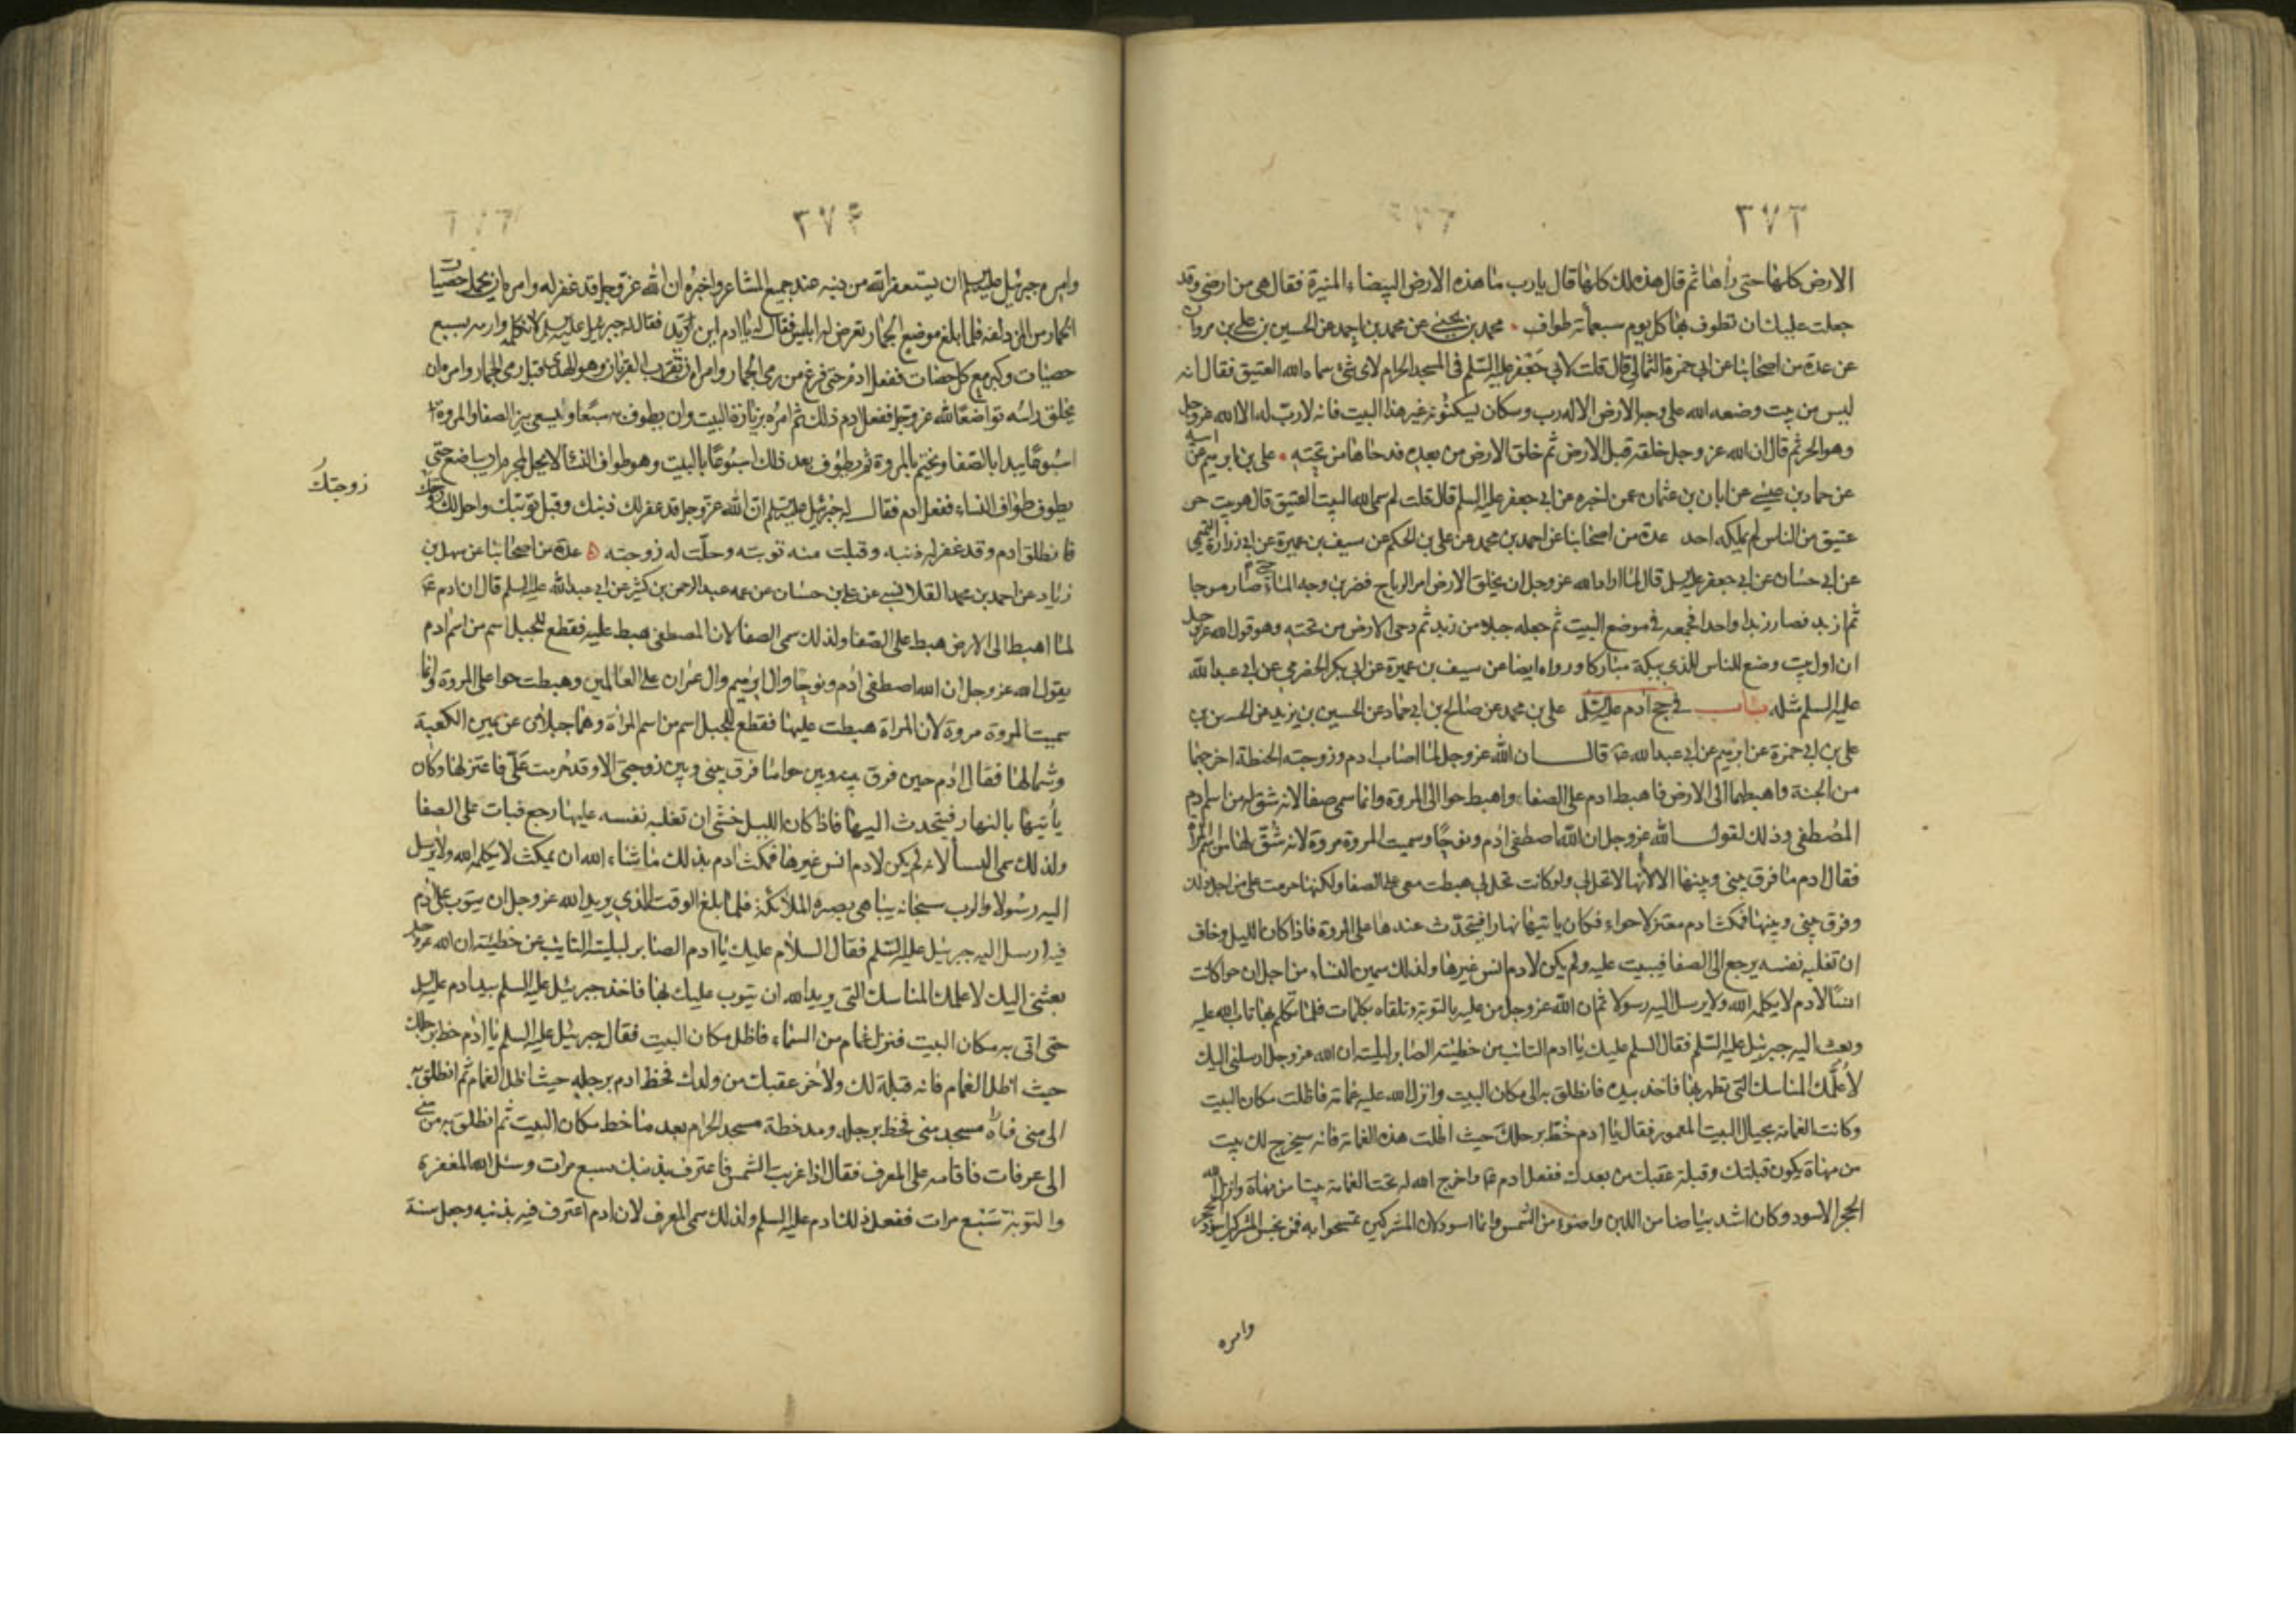 ٣٧٣
الارض كلها حتى رأها ثم قال هذه لك كلها قال يا رب ما هذه الارض البيضاء المنيرة فقال هى من ارضى وقد
جعلت عليك ان تطوف بها كل يوم سبعمأة طواف محمد بن يحيى عن محمد بن احمد عن الحسين بن على بن مروان
عن عدة من اصحابنا عن ابى حمزة الثمالى قال قلت لابى جعفر عليه السلم فى المسجد الحرام لاى شئ سماه الله العتيق فقال انه
ليس من بيت وضعه الله على وجه الارض الا له رب وسكان يسكنونه غير هذا البيت فانه لا رب له الا الله عز وجل
وهو الحر ثم قال ان الله عز وجل خلقه قبل الارض ثم خلق الارض من بعده فدحاها من تحته على بن ابرهيم عن ابيه
عن حماد بن عيسى عن ابان بن عثمان عمن اخبره عن ابى جعفر عليه السلم قال قلت لم سمى الله البيت العتيق قال هو بيت حر
عتيق من الناس لم يملكه احد عدة من اصحابنا عن احمد بن محمد عن على بن الحكم عن سيف بن عميرة عن ابى زرارة التميمى
عن ابى حسان عن ابى جعفر عليه السلم قال لما اراد الله عز وجل ان يخلق الارض امر الرياح فضربن وجه الماء حتى صار موجا
ثم ازبد فصار زبدا واحدا فجمعه فى موضع البيت ثم جعله جبلا من زبد ثم دحى الارض من تحته وهو قول الله عز وجل
ان اول بيت وضع للناس للذى ببكة مباركا ورواه ايضا عن سيف بن عميرة عن ابى بكر الحضرمى عن ابى عبد الله
عليه السلم مثله باب فى حج ادم عليه السلم على بن محمد عن صالح بن ابى حماد عن الحسين بن يزيد عن الحسن بن
على بن ابى حمزة عن ابرهيم عن ابى عبد الله قال ان الله عز وجل لما اصاب ادم وزوجته الحنطة اخرجهما
من الجنة واهبطهما الى الارض فاهبط ادم على الصفا واهبط حوا الى المروة وانما سمى صفا لانه شق له من اسم ادم
المصطفى وذلك لقول الله عز وجل ان الله اصطفى ادم ونوحا وسميت المروة مروة لانه شق لها من اسم المرأة
فقال ادم ما فرق بينى وبينها الا لأنها لا تحل لى ولو كانت تحل لى هبطت معى على الصفا ولكنها حرمت على من اجل ذلك
وفرق بينى وبينها فمكث ادم معتزلا حواء فكان ياتيها نهارا فيتحدث عندها على المروة فاذا كان الليل وخاف
ان تغلبه نفسه يرجع الى الصفا فيبيت عليه ولم يكن لادم انس غيرها ولذلك سمين النساء من اجل ان حوا كانت
انسا لادم لا يكلمه الله ولا يرسل اليه رسولا ثم ان الله عز وجل من عليه بالتوبة وتلقاه بكلمات فلما تكلم بها تاب الله عليه
وبعث اليه جبرئيل عليه السلم فقال السلم عليك يا ادم التائب من خطيئته الصابر لبليته ان الله عز وجل ارسلنى اليك
لأعلمك المناسك التى تطهر بها فاخذ بيده فانطلق به الى مكان البيت وانزل الله عليه غمامة فاظلت مكان البيت
وكانت الغمامة بحيال البيت المعمور فقال يا ادم خط برجلك حيث اظلت هذه الغمامة فانه سيخرج لك بيت
من مهاة يكون قبلتك وقبلة عقبك من بعدك ففعل ادم واخرج الله له تحت الغمامة بيتا من مهاة وانزل الله
الحجر الاسود وكان اشد بياضا من اللبن واضوء من الشمس وانما اسود لان المشركين تمسحوا به فمن نجس المشركين اسود الحجر
وامره
٣٧٤
وامره جبرئيل عليه السلم ان يستغفر الله من ذنبه عند جميع المشاعر واخبره ان الله عز وجل قد غفر له وامره ان يحمل حصيات
الجمار من المزدلفة فلما بلغ موضع الجمار تعرض له ابليس فقال له يا ادم اين تريد فقال له جبرئيل عليه السلم لا تكلمه وارمه بسبع
حصيات وكبر مع كل حصات ففعل ادم حتى فرغ من رمى الجمار وامره ان تقرب القربان وهو الهدى قبل رمى الجمار وامره ان
يحلق راسه تواضعا لله عز وجل ففعل ادم ذلك ثم امره بزيارة البيت وان يطوف به سبعا ويسعى بين الصفا والمروة
اسبوعا يبدا بالصفا ويختم بالمروة ثم يطوف بعد ذلك اسبوعا بالبيت وهو طواف النسا لا يحل لمحرم ان يباضع حتى
يطوف طواف النساء ففعل ادم فقال له جبرئيل عليه السلم ان الله عز وجل قد غفر لك ذنبك وقبل توبتك واحل لك زوجتك
زوجتك
فانطلق ادم وقد غفر له ذنبه وقبلت منه توبته وحلت له زوجته عدة من اصحابنا عن سهل بن
زياد عن احمد بن محمد القلانسى عن على بن حسان عن عمه عبد الرحمن بن كثير عن ابى عبد الله عليه السلم قال ان ادم
لما اهبط الى الارض هبط على الصفا ولذلك سمى الصفا لان المصطفى هبط عليه فقطع للجبل اسم من اسم ادم
يقول الله عز وجل ان الله اصطفى ادم ونوحا وال ابرهيم وال عمران على العالمين وهبطت حوا على المروة وانما
سميت المروة مروة لان المراة هبطت عليها فقطع للجبل اسم من اسم المراة وهما جبلان عن يمين الكعبة
وشمالها فقال ادم حين فرق بينه وبين حوا ما فرق بينى وبين زوجتى الا وقد حرمت على فاعتزلها وكان
يأتيها بالنهار فيتحدث اليها فاذا كان الليل خشى ان تغلبه نفسه عليها رجع فبات على الصفا
ولذلك سمى النسا لانه لم يكن لادم انس غيرها فمكث ادم بذلك ما شاء الله ان يمكث لا يكلمه الله ولا يرسل
اليه رسولا والرب سبحانه يباهى بصبره الملائكة فلما بلغ الوقت الذى يريد الله عز وجل ان يتوب على ادم
فيه ارسل اليه جبرئيل عليه السلم فقال السلام عليك يا ادم الصابر لبليته التايب عن خطيئته ان الله عز وجل
بعثنى اليك لاعلمك المناسك التى يريد الله ان يتوب عليك بها فاخذ جبرئيل عليه السلم بيد ادم عليه السلم
حتى اتى به مكان البيت فنزل غمام من السماء فاظل مكان البيت فقال جبرئيل عليه السلم يا ادم خط برجلك
حيث اظل الغمام فانه قبلة لك ولآخر عقبك من ولدك فخط ادم برجله حيث اظل الغمام ثم انطلق به
الى منى فاراه مسجد منى فخط برجله ومد خطة مسجد الحرام بعد ما خط مكان البيت ثم انطلق به من منى
الى عرفات فاقامه على المعرف فقال اذا غربت الشمس فاعترف بذنبك سبع مرات وسئل الله المغفرة
والتوبة سبع مرات ففعل ذلك ادم عليه السلم ولذلك سمى المعرف لان ادم اعترف فيه بذنبه وجعل سنة